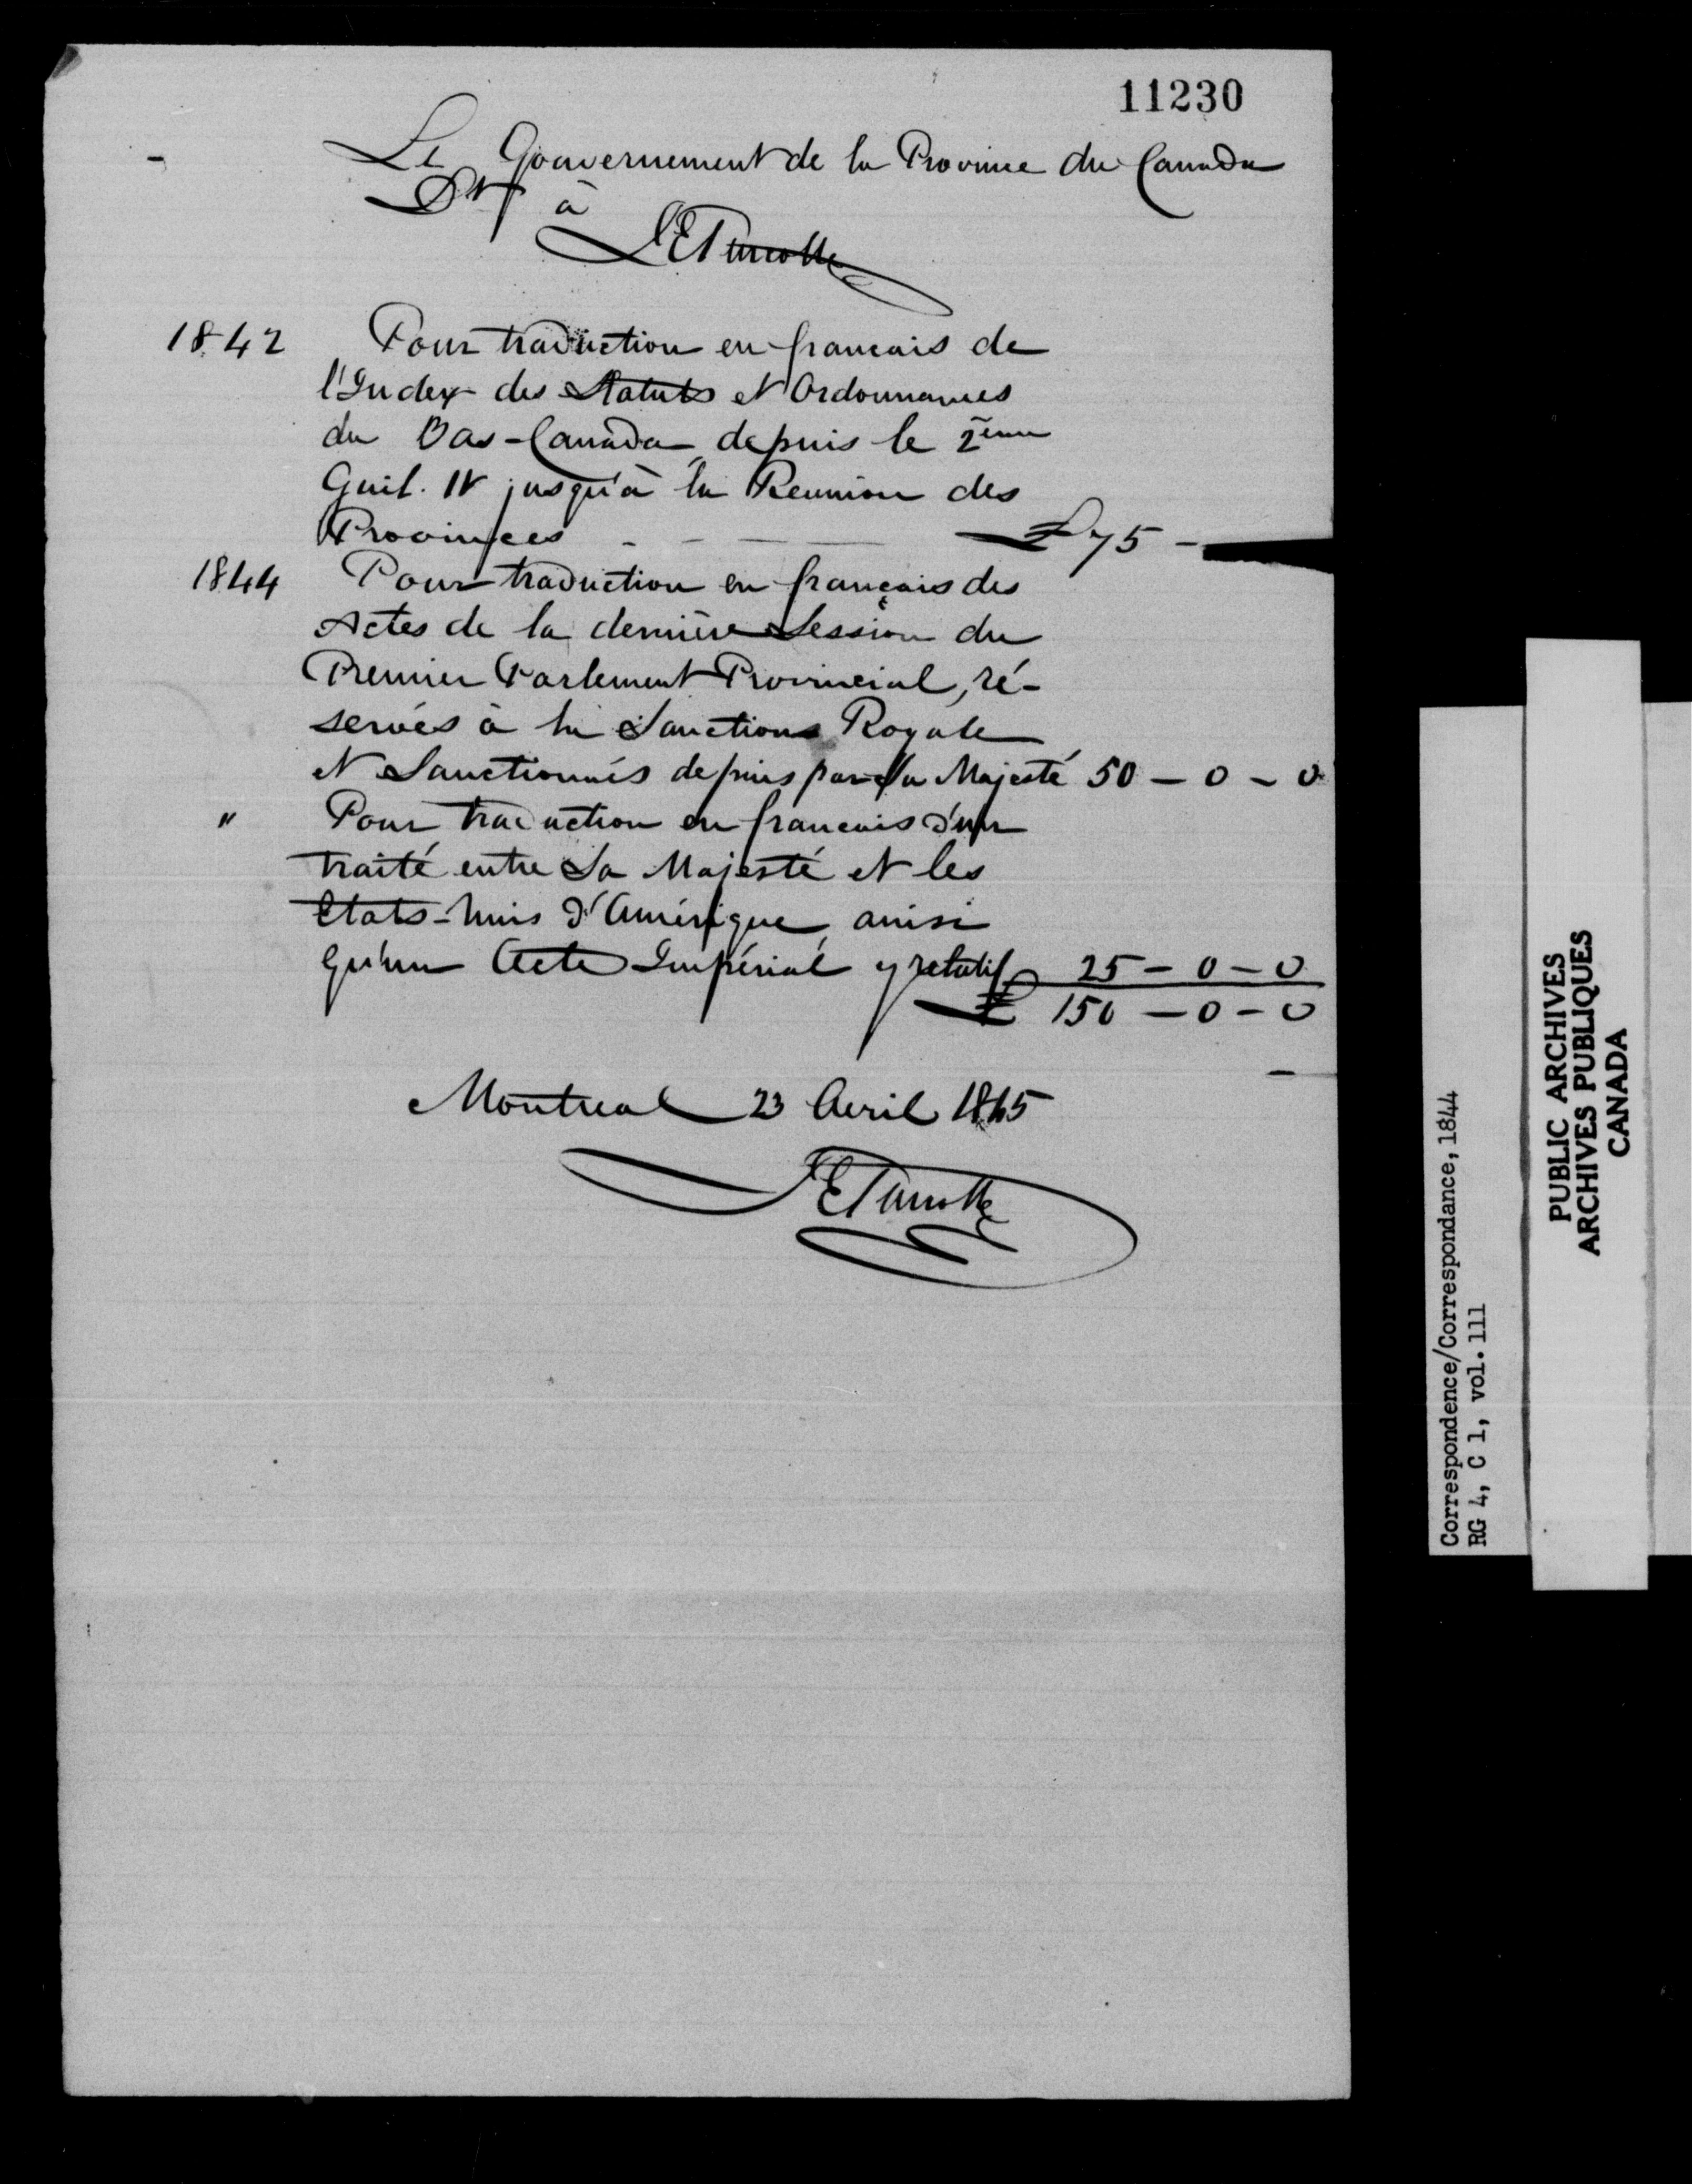 11230
Le Gouvernement de la Province du Canada
Dt à
J E Turcotte
1842 Pour traduction en francais de
l'Index des Statuts et Ordonnances
du Bas-Canada, depuis le 2ème
Guil. IV jusqu'à la Reunion des
Provinces - - - - £75 -
1844 Pour traduction en français des
Actes de la dernière Session du
Premier Parlement Provincial, ré-
servés à la Sanction Royale
et Sanctionnés depuis par Sa Majesté 50 - 0 - 0
" Pour traduction en francais d'un
traité entre Sa Majesté et les
Etats-Unis d'Amérique, ainsi
qu'un Acte Impérial y relatif 25 - 0 - 0
£ 150 - 0 - 0
Montreal 23 Avril 1845
J E Turcotte
Correspondence/Correspondance, 1844
RG 4, C 1, vol. 111
PUBLIC ARCHIVES
ARCHIVES PUBLIQUES
CANADA